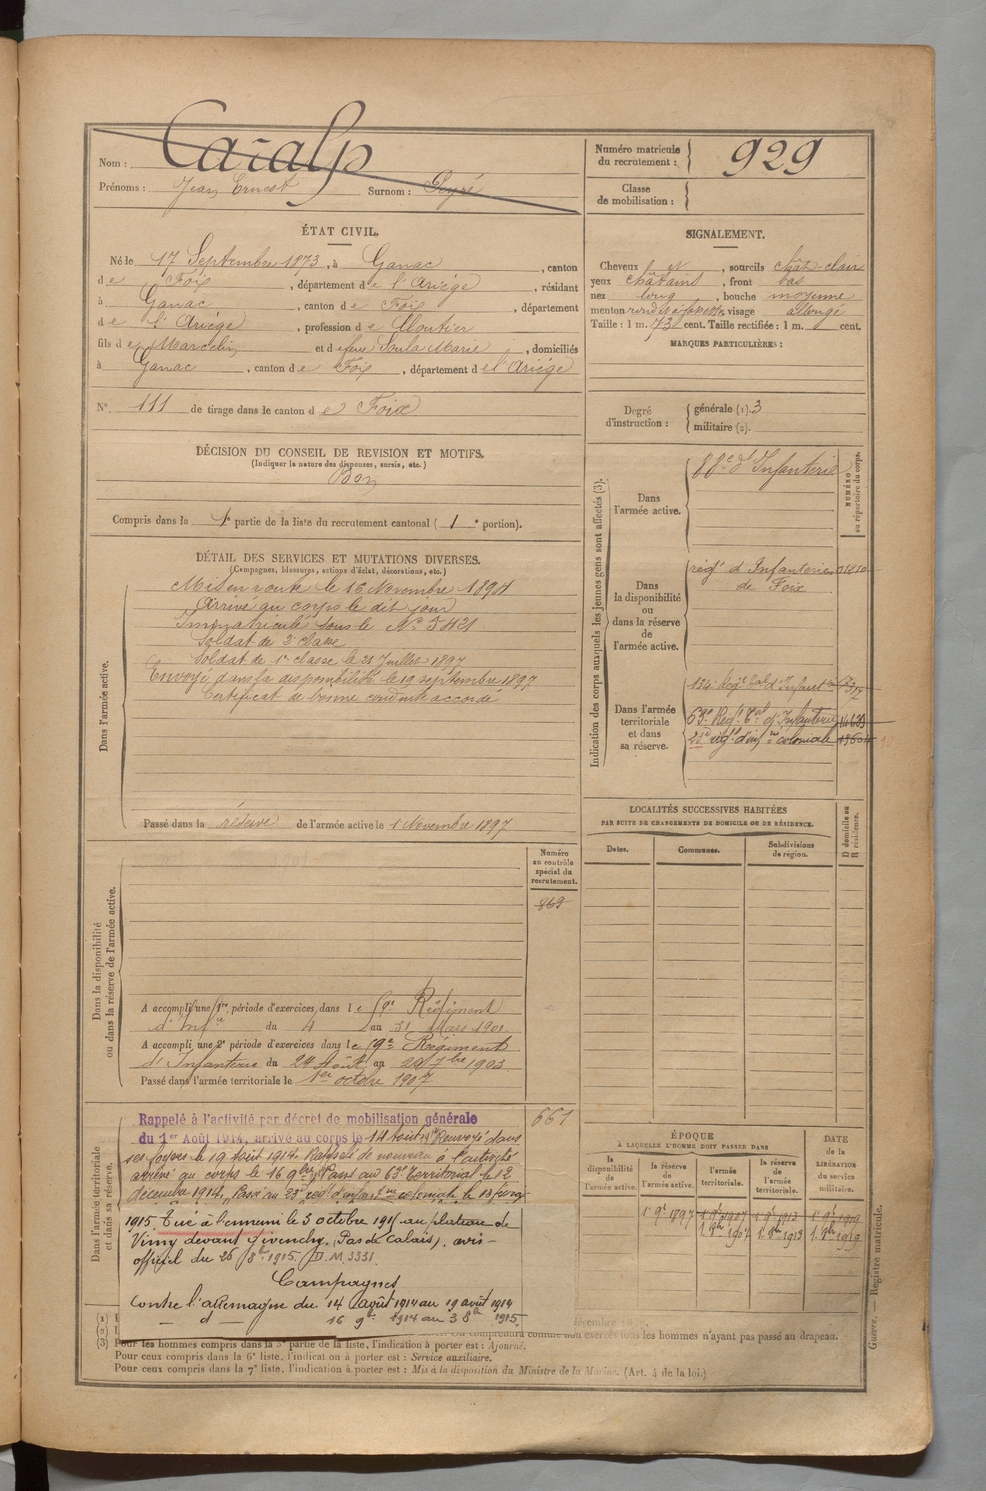 Nom : Caralp
Prénoms : Jean Ernest Surnom : Peyré
Numéro matricule du recrutement : 929
Classe de mobilisation :
ÉTAT CIVIL.
Né le 17 Septembre 1873, à Ganac, canton
de Foix, département de l'Ariège, résidant
à Ganac, canton de Foix, département
de l'Ariège, profession de Cloutier
fils de Marcelin et de feue Soula Marie, domiciliés
à Ganac, canton de Foix, département de l'Ariège
N° 111 de tirage dans le canton de Foix
SIGNALEMENT.
Cheveux et, sourcils chât-clair
yeux châtains, front bas
nez long, bouche moyenne
menton rond à fossette, visage allongé
Taille : 1 m. 73 cent. Taille rectifiée : 1 m. cent.
MARQUES PARTICULIÈRES :
Degré d'instruction : générale (1). 3
militaire (2).
DÉCISION DU CONSEIL DE REVISION ET MOTIFS.
(Indiquer la nature des dispenses, sursis, etc.)
Bon
Compris dans la 1e partie de la liste du recrutement cantonal (1e portion).
DÉTAIL DES SERVICES ET MUTATIONS DIVERSES.
(Campagnes, blessures, actions d'éclat, décorations, etc.)
Dans l'armée active.
Mis en route le 16 Novembre 1894
Arrivé au corps le dit jour
Immatriculé sous le N° 5421
Soldat de 2e classe
Soldat de 1e classe le 21 Juillet 1897
Envoyé dans la disponibilité le 19 septembre 1897
Certificat de bonne conduite accordé
Passé dans la réserve de l'armée active le 1 Novembre 1897
Indication des corps auxquels les jeunes gens sont affectés (3).
NUMÉRO au répertoire du corps.
Dans l'armée active.
d'Infanterie
Dans la disponibilité ou dans la réserve de l'armée active.
régt d'Infanterie
de Foix
Dans l'armée territoriale et dans sa réserve.
134e Régt tal d'Infanterie
63e Régt tal d'Infanterie
régt d'infrie coloniale
LOCALITÉS SUCCESSIVES HABITÉES
PAR SUITE DE CHANGEMENTS DE DOMICILE OU DE RÉSIDENCE.
Dates. Communes. Subdivisions de région. D domicile ou R résidence.
Dans la disponibilité ou dans la réserve de l'armée active.
Numéro au contrôle spécial du recrutement.
869
A accompli une 1re période d'exercices dans le Régiment
d'Infie du 4 au 31 Mars 1901.
A accompli une 2e période d'exercices dans le Régiment
d'Infanterie du 24 Août au 20 7bre 1903
Passé dans l'armée territoriale le 1er octobre 1907
Dans l'armée territoriale et dans sa réserve.
661
Rappelé à l'activité par décret de mobilisation générale
du 1er Août 1914, arrivé au corps le 14 Août 14 Renvoyé dans
ses foyers le 19 Août 1914. Rappelé de nouveau à l'activité
arrivé au corps le 16 9bre Passé au 63e Territorial le 12
décembre 1914. Passé au 23e régt d'infanterie coloniale le
1915. Tué à l'ennemi le 3 octobre 1915 au plateau de
Vimy devant Givenchy. (Pas de Calais). avis
officiel du 26 8bre 1915. D.M. 3331.
Campagnes
Contre l'allemagne du 14 août 1914 au 19 août 1914
— d — 16 9bre 1914 au 3 8bre 1915.
ÉPOQUE
À LAQUELLE L'HOMME DOIT PASSER DANS
la disponibilité de l'armée active. la réserve de l'armée active. l'armée territoriale. la réserve de l'armée territoriale.
DATE DE LA LIBÉRATION du service militaire.
1 9bre 1897 1 9bre 1907 1 9bre 1913 1 9bre 1919
1. 8bre 1907 1. 8bre 1913 1. 8bre 1919
comprendra comme non exercés tous les hommes n'ayant pas passé au drapeau.
(3) Pour les hommes compris dans la 3e partie de la liste, l'indication à porter est : Ajourné.
Pour ceux compris dans la 6e liste, l'indication à porter est : Service auxiliaire.
Pour ceux compris dans la 7e liste, l'indication à porter est : Mis à la disposition du Ministre de la Marine. (Art. 4 de la loi.)
Guerre. — Registre matricule.